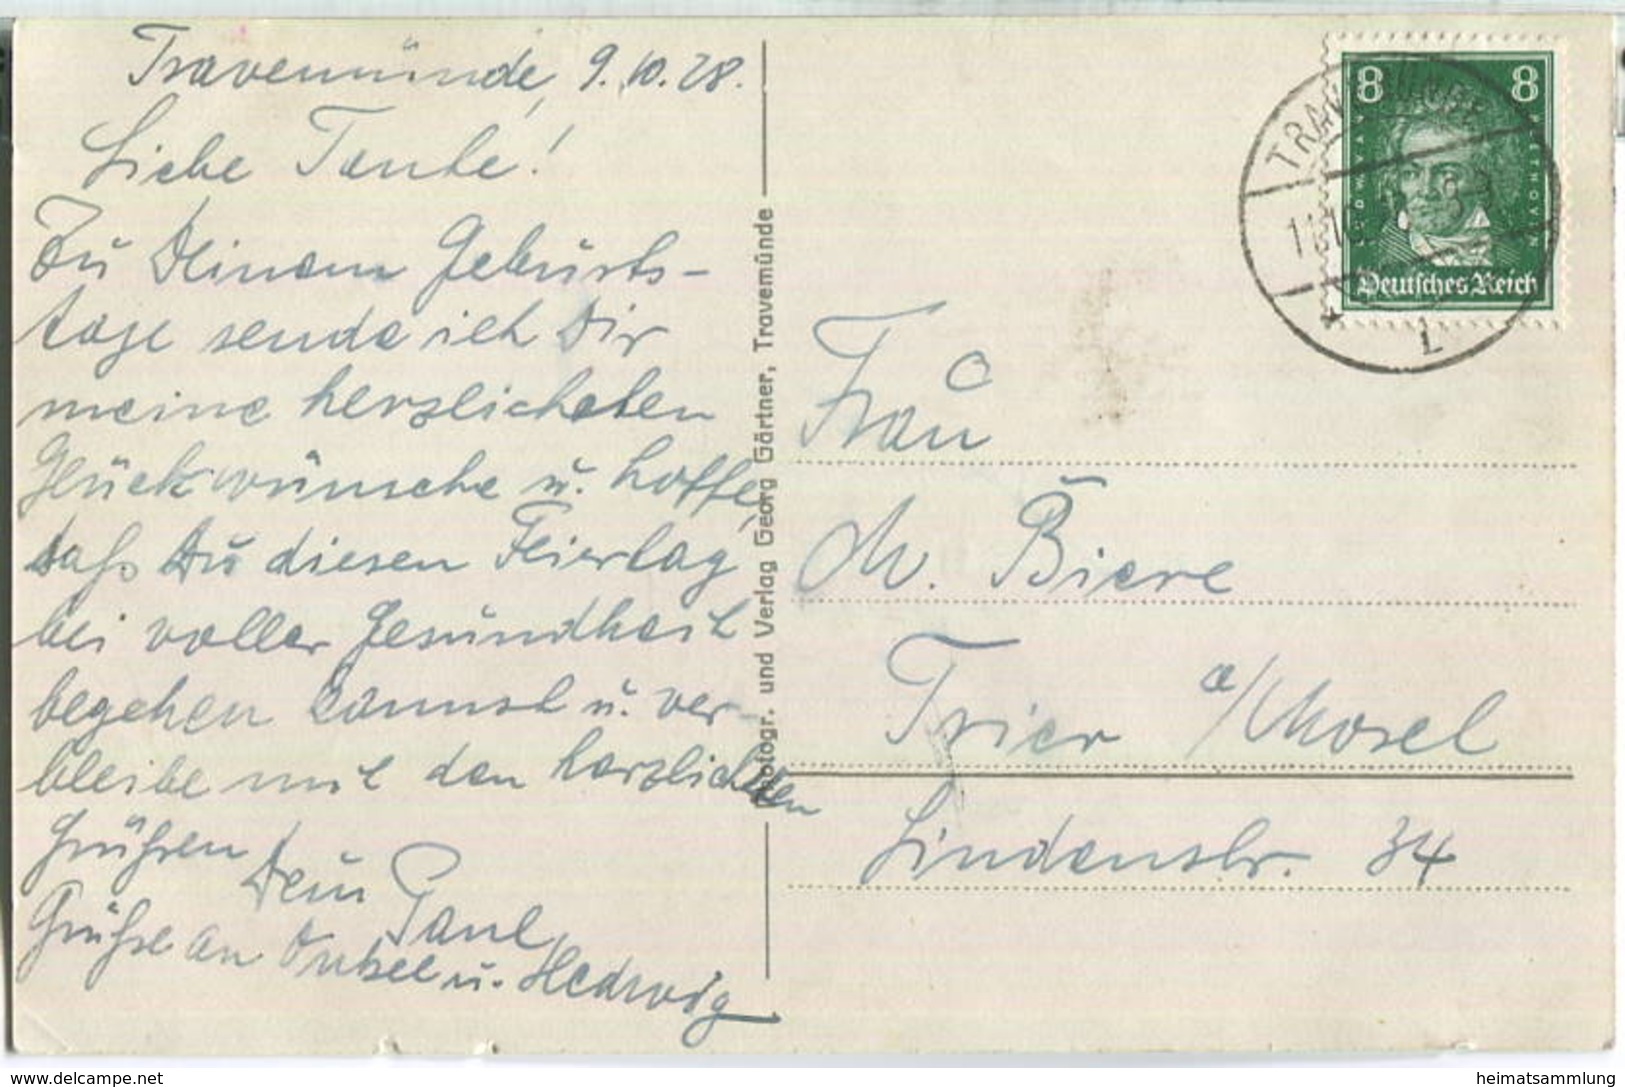 Travemünde, 9.10.28.
Liebe Tante!
Zu Deinem Geburts-
tage sende ich Dir
meine herzlichsten
Glückwünsche u. hoffe,
daß Du diesen Feiertag
bei voller Gesundheit
begehen kannst u. ver-
bleibe mit den herzlichsten
Grüßen
Dein Paul
Grüße an Onkel u. Hedwig
Photogr. und Verlag Georg Gärtner, Travemünde
8 8
LUDWIG VAN BEETHOVEN
Deutsches Reich
TRAVEMÜNDE
Frau
M. Biere
Trier a/Mosel
Lindenstr. 34
www.delcampe.net
heimatsammlung